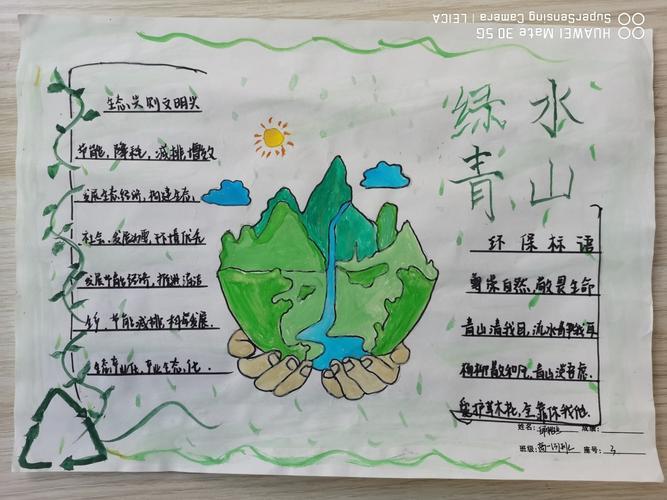 HUAWEI Mate 30 5G
SuperSensing Camera | LEICA
绿水
青山
生态兴则文明兴
节能,降耗,减排,增效
发展生态经济,构建生态
社会、发展 环境优先
发展节能经济,推进清洁
节能减排,
生态产业化,产业生态化.
环保标语
尊崇自然,敬畏生命
青山清我目,流水静我耳
杨柳 和风,青山
爱护草木花,全靠你我他.
姓名:
成绩:
班级:
座号:3